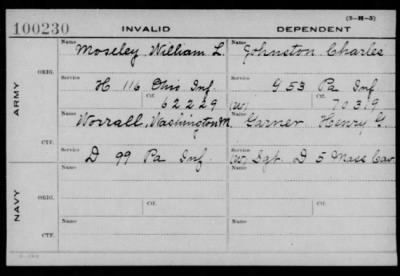 (3-H-3)
100230 INVALID DEPENDENT
Name Moseley, William L. Name Johnston Charles
ARMY
ORIG.
Service H 116 Ohio Inf. Service G. 53 Pa Inf
Ctf. 62229 Ctf. (W) 70319
CTF.
Name Worrall, Washington M. Name Garner Henry G.
Service D 99 Pa Inf Service (W) Sgt. D 5 Mass Cav
NAVY
ORIG.
Ctf. Ctf.
CTF.
Name Name